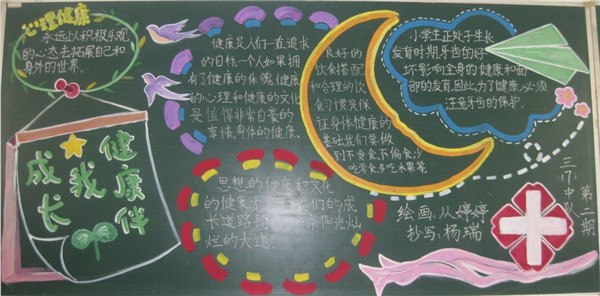 心理健康
永远以积极乐观
的心态去拓展自己和
身外的世界。
健康伴
我
成长
健康是人们一直追求
的目标一个人如果拥
有了健康的体魄健康
的心理和健康的文化
是值得非常自豪的
事情身体的健康、
思想的健康和文化
的健康才
们的成
长道路
条阳光灿
烂的大道
良好的
饮食搭配
和合理的饮
食习惯是保
证身体健康的
基础我们要做
到不贪食不偏食少
吃零食多吃水果等
小学生正处于生长
发育时期牙齿的好
坏影响全身的健康和面
部的发育因此为了健康必须
注意牙齿的保护。
三(1)中队
第二期
绘画:从婷婷
抄写:杨瑞